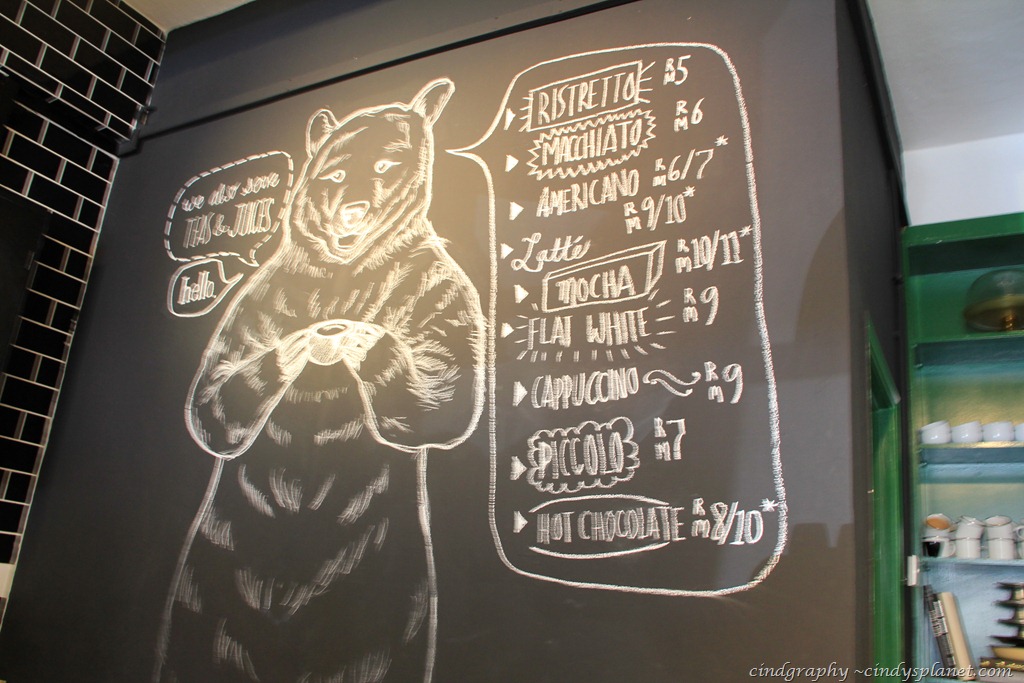 we also serve
TEAS & JUICES
hello.
RISTRETTO RM5
MACCHIATO RM6
AMERICANO RM6/7*
Latté RM9/10*
MOCHA RM10/11*
FLAT WHITE RM9
CAPPUCCINO RM9
PICCOLO RM7
HOT CHOCOLATE RM8/10*
cindgraphy ~cindysplanet.com